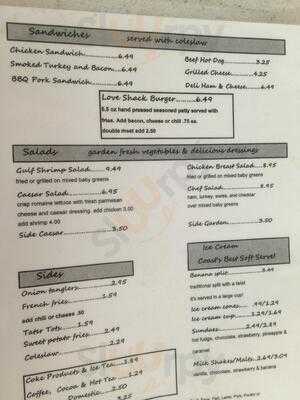 Sandwiches served with coleslaw
Chicken Sandwich 6.49
Smoked Turkey and Bacon 6.49
BBQ Pork Sandwich 6.49
Beef Hot Dog 3.25
Grilled Cheese 4.25
Deli Ham & Cheese 6.49
Love Shack Burger 6.49
6.5 oz hand pressed seasoned patty served with
fries. Add bacon, cheese or chili .75 ea.
double meat add 2.50
Salads garden fresh vegetables & delicious dressings
Gulf Shrimp Salad 9.49
fried or grilled on mixed baby greens
Caesar Salad 6.95
crisp romaine lettuce with fresh parmesan
cheese and caesar dressing. add chicken 3.00
add shrimp 4.00
Side Caesar 3.50
Chicken Breast Salad 8.95
fried or grilled on mixed baby greens
Chef Salad 8.95
ham, turkey, swiss, and cheddar
over mixed baby greens
Side Garden 3.50
Sides
Onion tanglers 2.95
French fries 1.59
add chili or cheese .50
Tater Tots 1.59
Sweet potato fries 2.49
Coleslaw 2.29
Coke Products & Ice Tea 1.89
Coffee, Cocoa & Hot Tea 1.29
Domestic 2.50
3.50
Ice Cream
Coast's Best Soft Serve!
Banana split 3.49
traditional split with a twist
it's served in a large cup!
Ice cream cones .99/1.29
Ice cream cup 1.29/1.69
Sundaes 2.49/2.89
hot fudge, chocolate, strawberry, pineapple &
caramel
Milk Shakes/Malts 2.69/3.09
vanilla, chocolate, strawberry & banana